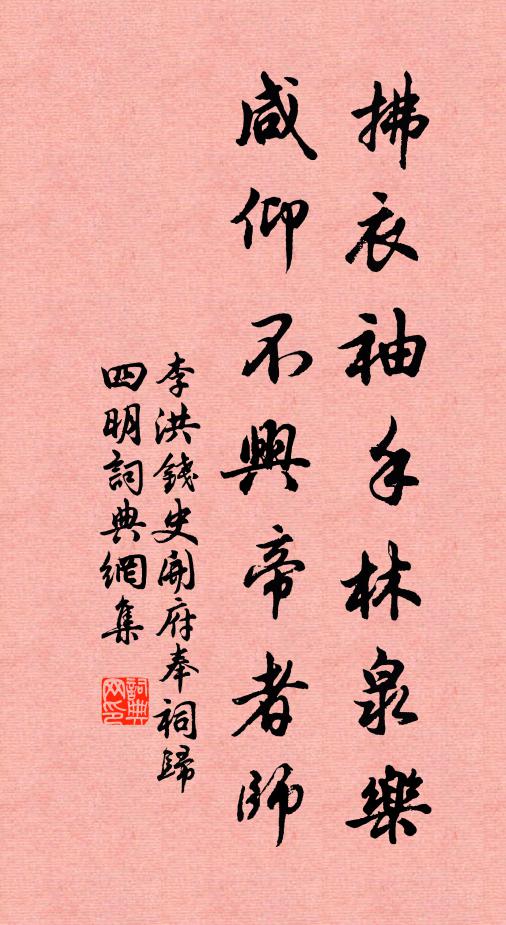 拂衣袖手林泉樂
咸仰不興帝者師
李洪錢史開府奉祠歸
四明詞典網集
詞典网印